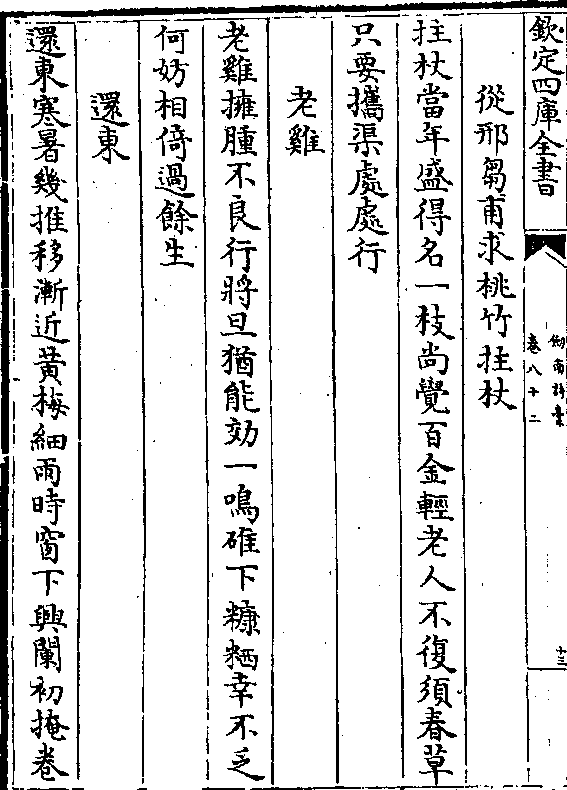 欽定四庫全書
劍南詩稾
卷八十二
十三
從邢芻甫求桃竹拄杖
拄杖當年盛得名一枝尚覺百金輕老人不復須春草
只要攜渠處處行
老雞
老雞擁腫不良行將旦猶能効一鳴碓下糠粞幸不乏
何妨相倚過餘生
還東
還東寒暑幾推移漸近黄梅細雨時窗下興闌初掩卷